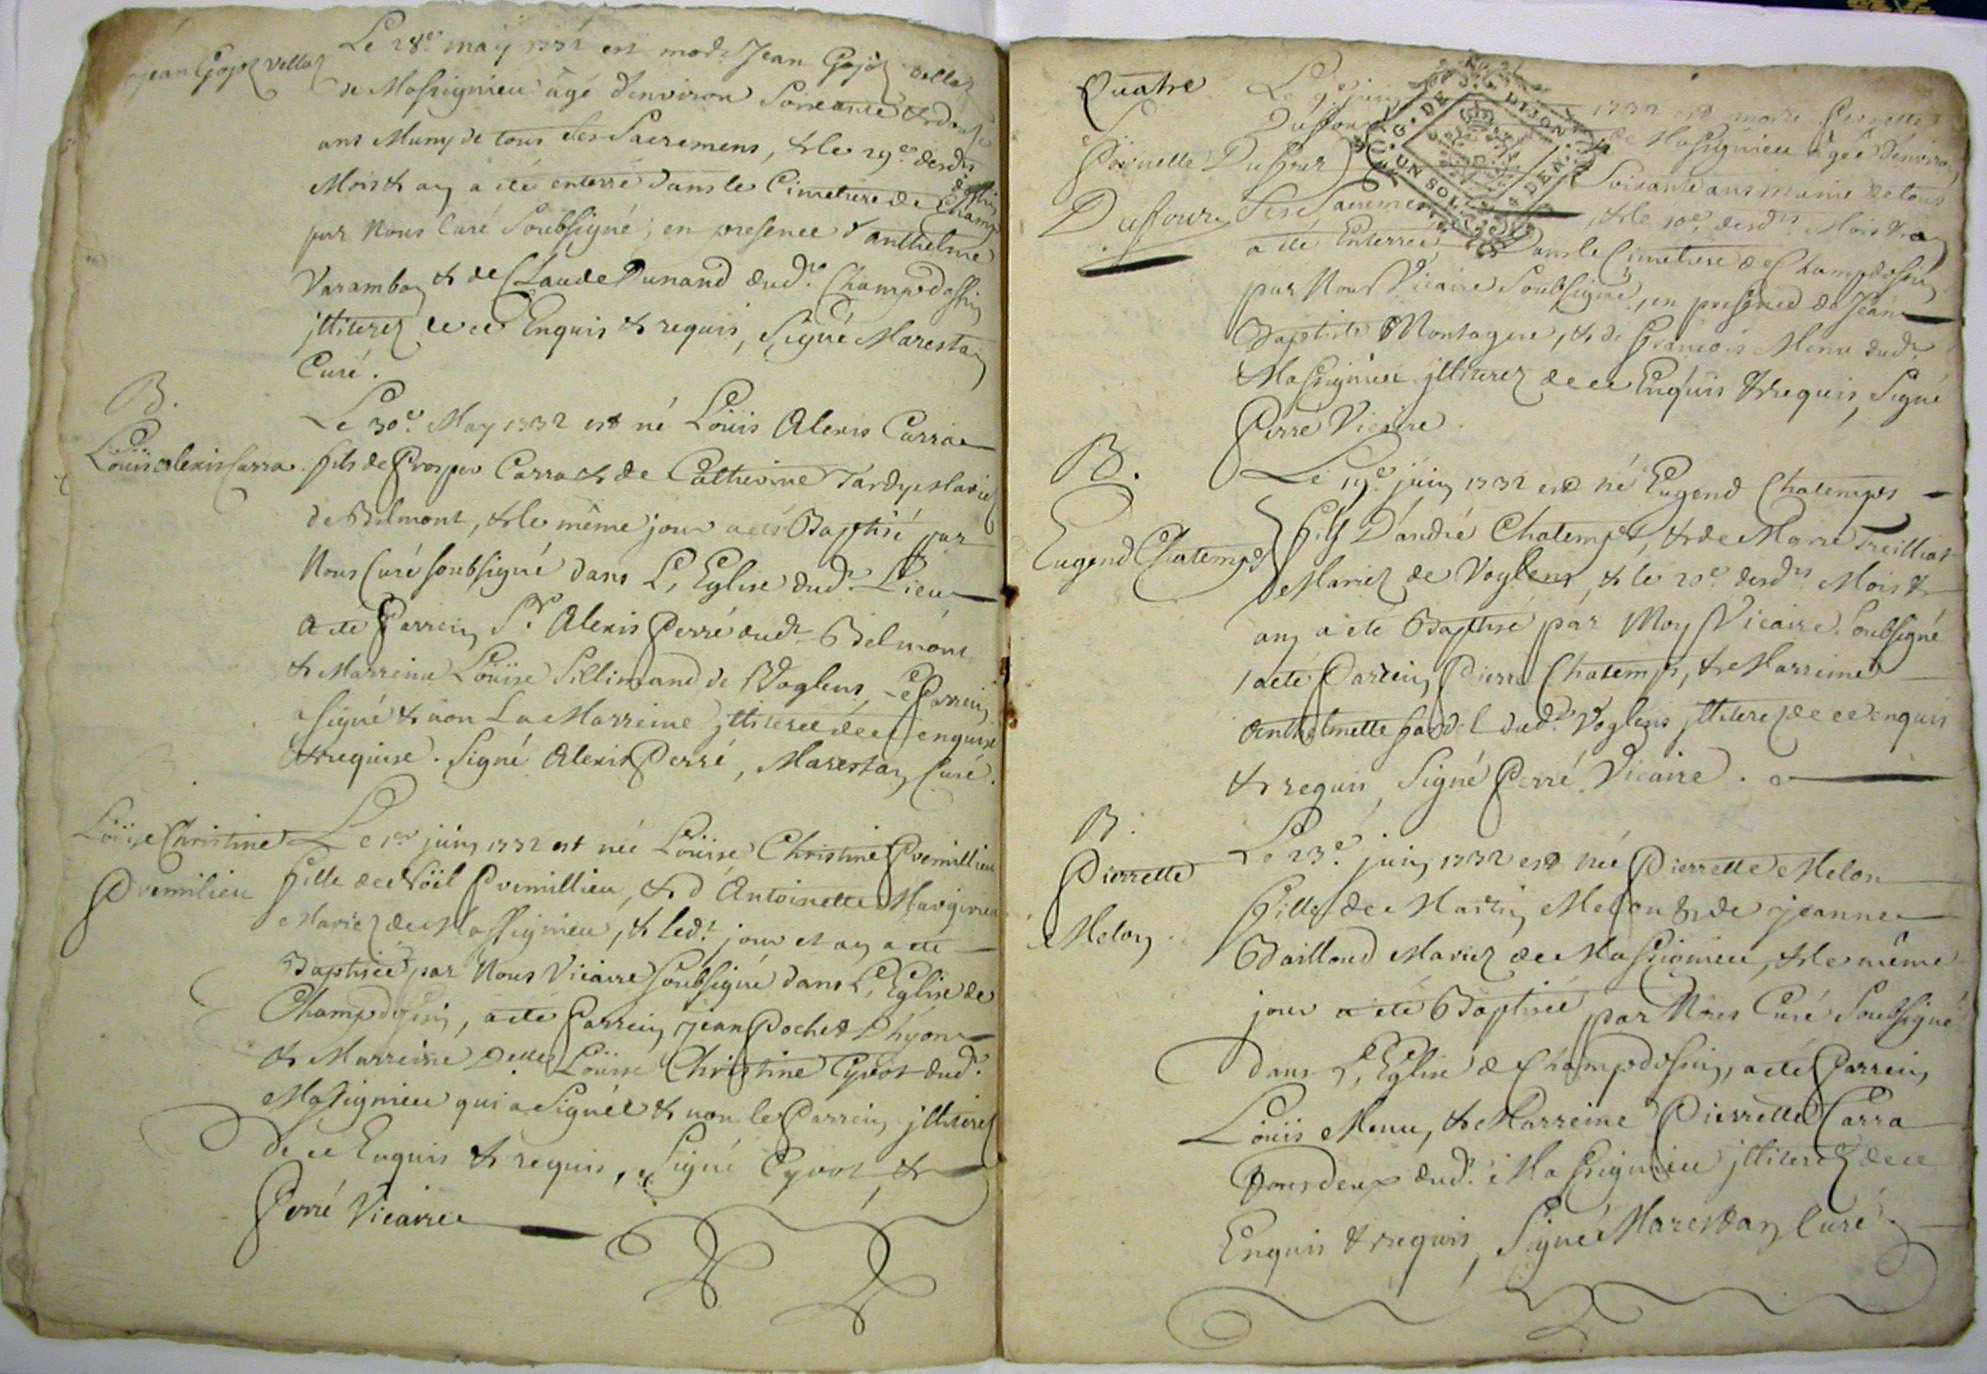 Jean Gojoz Vellaz
Le 28e may 1732 est mort Jean Gojoz Vellaz
de Massignieu âgé d'environ soixante & douze
ans Muny de tous ses Sacremens, & le 29e desdts
Mois & an a été enterré dans le Cimetiere de Champdossin
par Nous Curé Soubsigné, en presence d'anthelme
Varambon & de Claude Dunand dudt Champdossin
jlliterez de ce Enquis & requis, Signé Marestan
Curé.
B.
Loüis alexis Carra
Le 30e May 1732 est né Loüis Alexis Carra
fils de Prosper Carra & de Catherine Tardy Mariez
de Belmont, & le même jour a été Baptisé par
Nous Curé soubsigné dans L'Eglise dudt Lieu
a été Parrein Sr Alexis Perré dudt Belmont
& Marreine Loüise Sillimand de Voglens, Le Parrein
a signé & non La Marreine jlliterée de ce enquise
& requise. Signé Alexis Perré, Marestan Curé.
Loüise Christine
Premilieu
Le 1er juin 1732 est née Loüise Christine Premillieu
fille de Noël Premillieu, & d'Antoinette
Mariez de Massignieu, & ledt jour et an a été
Baptisée par Nous Vicaire Soubsigné dans L'Eglise de
Champdossin, a été Parrein Jean Pochet
& Marreine Delle Loüise Christine Cyvot dudt
Massignieu qui a Signée & non le Parrein jlliteré
de ce Enquis & requis, Signé Cyvot, &
Perré Vicaire
Quatre
Pernette
Duffour
Le 9e juin 1732 est morte Pernette
Duffour de Massignieu âgée d'environ
Soixante ans munie de tous
Ses Sacremens, & le 10e desdts Mois & an
a été Enterrée Dans le Cimetiere de Champdossin
par Nous Vicaire Soubsigné, en presence de Jean
Baptiste Montagne, & de François Menu dudt
Massignieu jlliterez de ce Enquis & requis, Signé
Perré Vicaire.
B.
Eugend Chatemps
Le 19e juin 1732 est né Eugend Chatemps
fils D'andré Chatemps, & de Marie Treilliat
Mariez de Voglens, & le 20e desdts Mois &
an a été Baptisé par Moy Vicaire Soubsigné
a été Parrein Pierre Chatemps, & Marreine
Anthelmette dudt Voglens jlliterez de ce enquis
& requis, Signé Perré Vicaire.
B.
Pierrette
Melon
Le 23e juin 1732 est née Pierrette Melon
fille de Martin Melon & de Jeanne
Baillond Mariez de Massignieu, & le même
jour a été Baptisée par Nous Curé Soubsigné
dans L'Eglise de Champdossin, a été Parrein
Loüis Menu, & Marreine Pierrette Carra
tous deux dudt Massignieu jlliterez de ce
Enquis & requis, Signé Marestan Curé